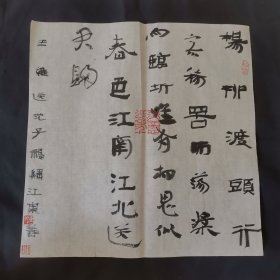 楊柳渡頭行
客稀罟師蕩槳
向臨圻惟有相思似
春色江南江北送
君歸
王維送沈子福歸江東